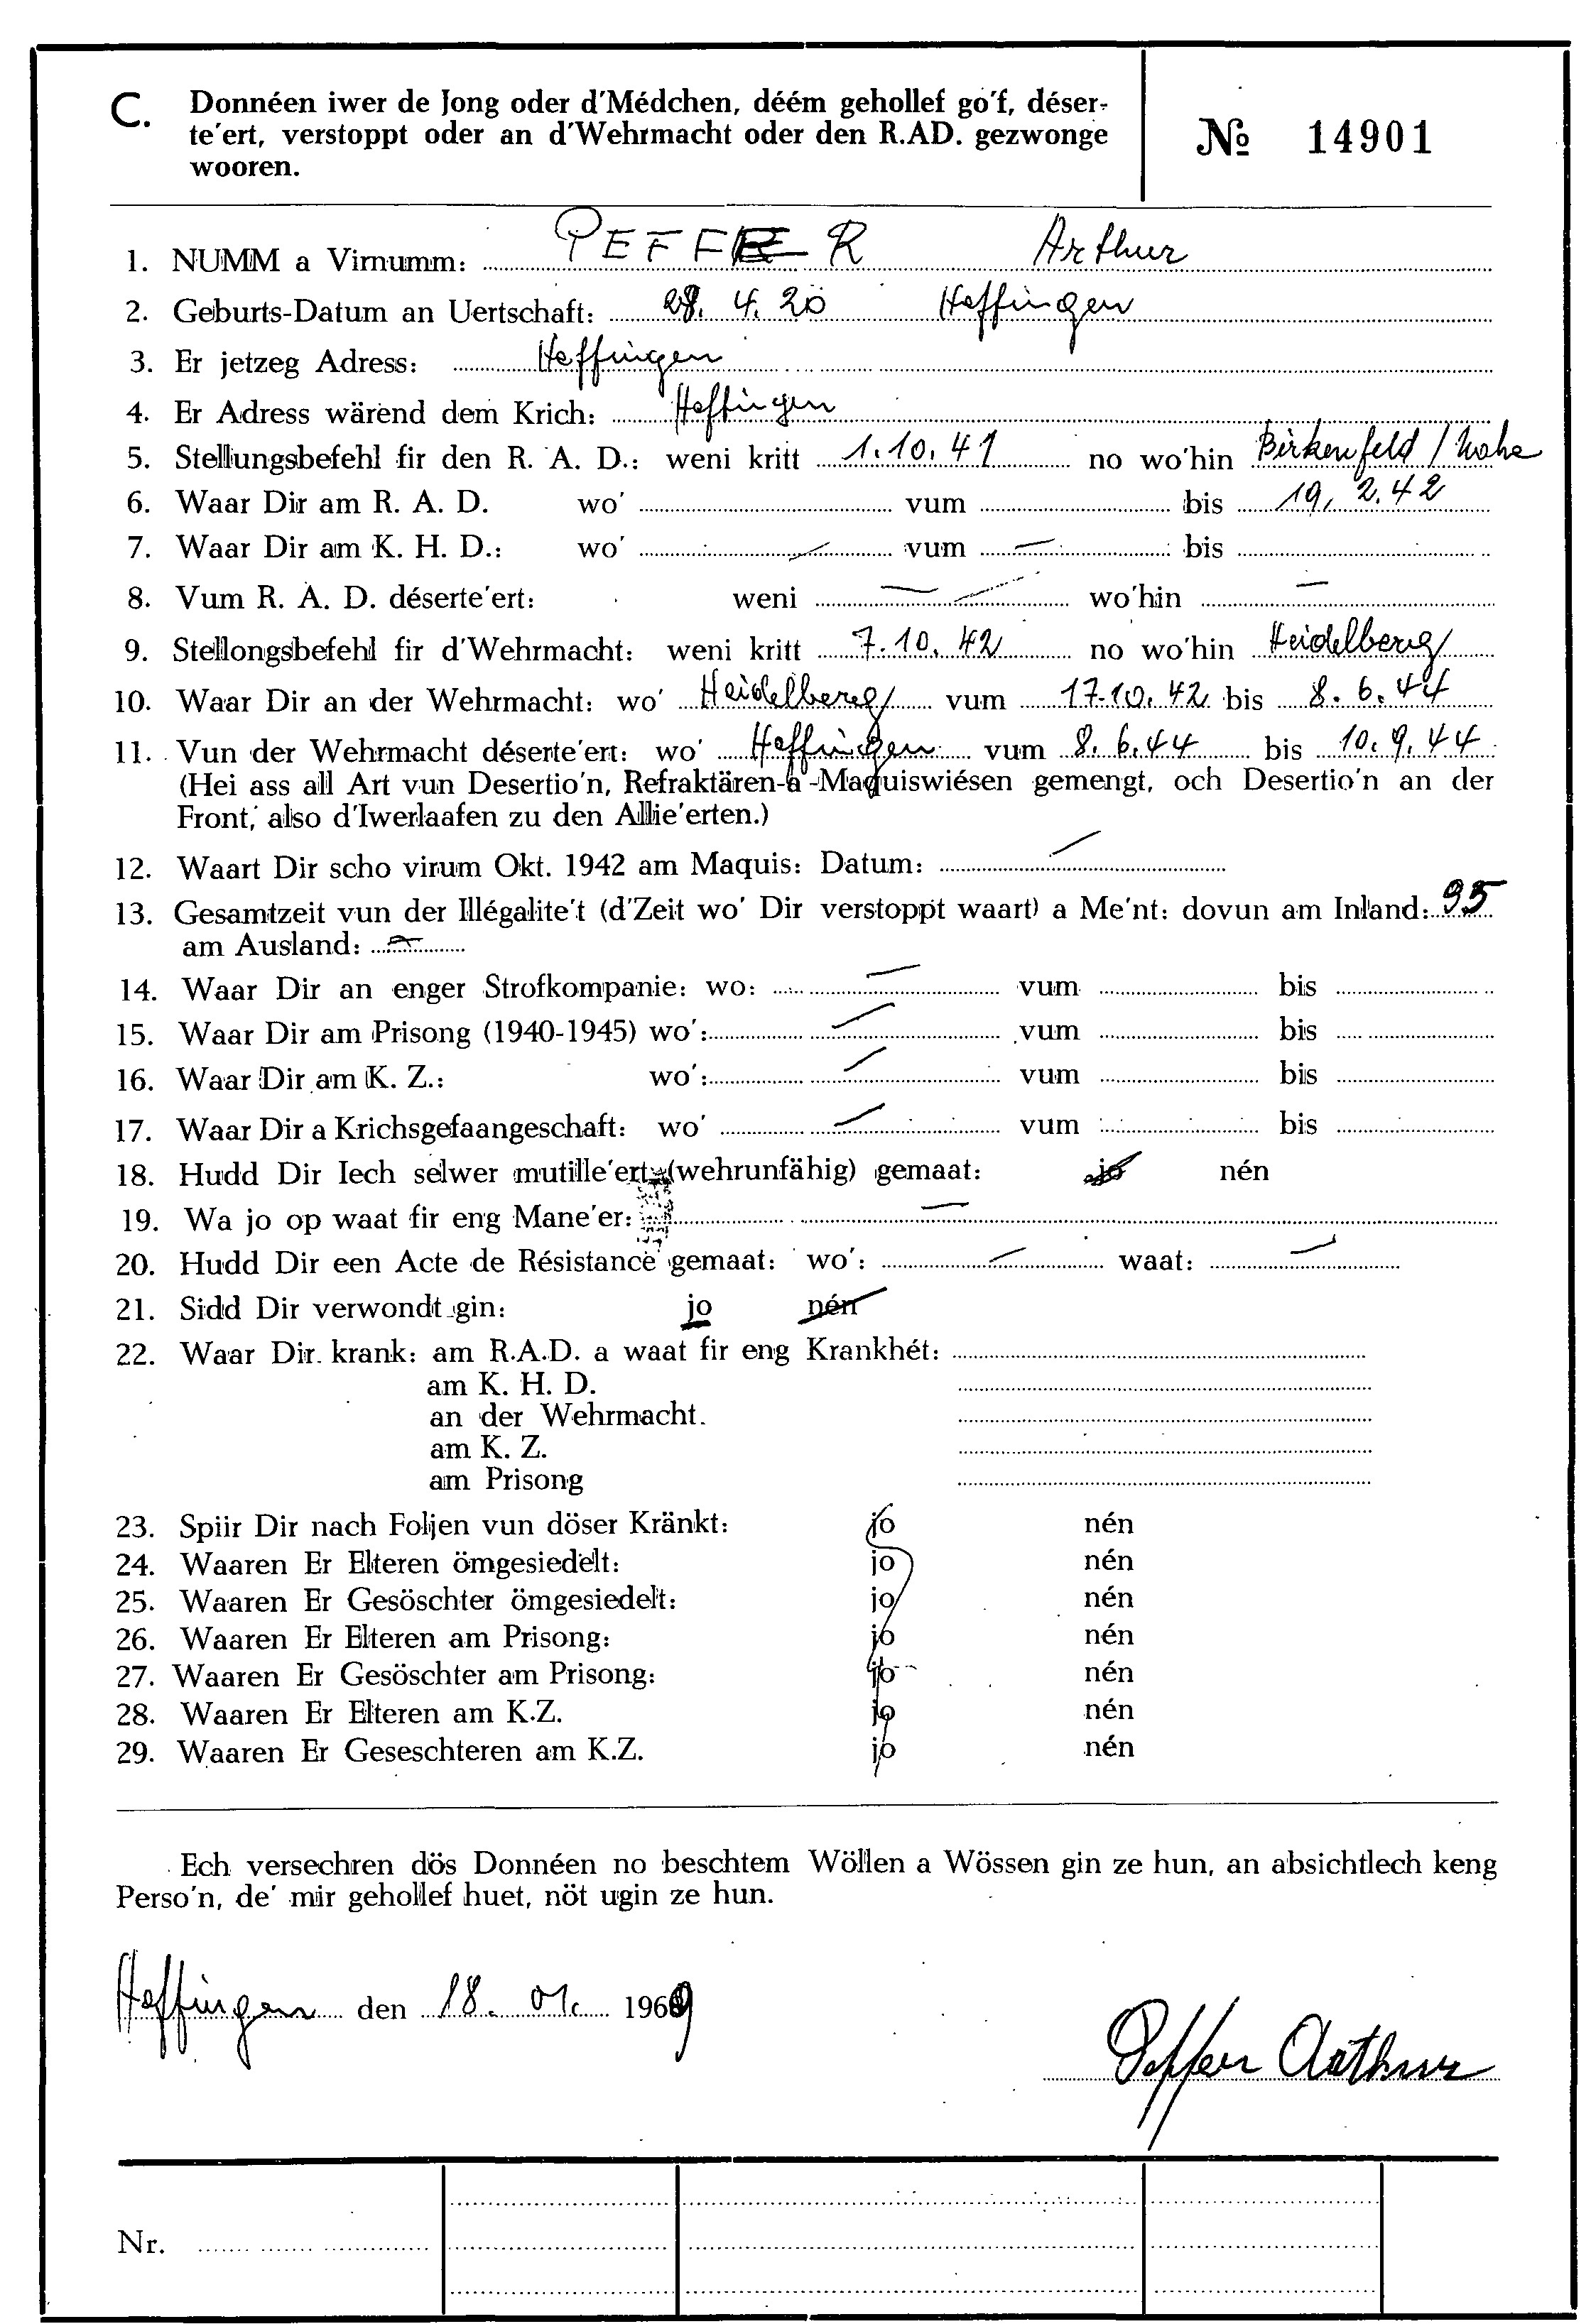 C. Donnéen iwer de Jong oder d'Médchen, déém gehollef go'f, déser-
te'ert, verstoppt oder an d'Wehrmacht oder den R.AD. gezwonge
wooren.
№ 14901
1. NUMM a Virnumm: PEFFER Arthur
2. Geburts-Datum an Uertschaft: 28. 4. 20 Heffingen
3. Er jetzeg Adress: Heffingen
4. Er Adress wärend dem Krich: Heffingen
5. Stellungsbefehl fir den R. A. D.: weni kritt 1.10.41 no wo'hin Birkenfeld / Nahe
6. Waar Dir am R. A. D. wo' vum bis 19. 2. 42
7. Waar Dir am K. H. D.: wo' — vum — bis
8. Vum R. A. D. déserte'ert: weni — wo'hin —
9. Stellongsbefehl fir d'Wehrmacht: weni kritt 7.10.42 no wo'hin Heidelberg
10. Waar Dir an der Wehrmacht: wo' Heidelberg vum 17.10.42 bis 8.6.44
11. Vun der Wehrmacht déserte'ert: wo' Heffingen vum 8.6.44 bis 10.9.44
(Hei ass all Art vun Desertio'n, Refraktären-a-Maquiswiésen gemengt, och Desertio'n an der
Front, also d'Iwerlaafen zu den Allie'erten.)
12. Waart Dir scho virum Okt. 1942 am Maquis: Datum: —
13. Gesamtzeit vun der Illégalite't (d'Zeit wo' Dir verstoppt waart) a Me'nt: dovun am Inland: 95
am Ausland: —
14. Waar Dir an enger Strofkompanie: wo: — vum bis
15. Waar Dir am Prisong (1940-1945) wo': — vum bis
16. Waar Dir am K. Z.: wo': — vum bis
17. Waar Dir a Krichsgefaangeschaft: wo' — vum bis
18. Hudd Dir Iech selwer mutille'ert (wehrunfähig) gemaat: jo nén
19. Wa jo op waat fir eng Mane'er: —
20. Hudd Dir een Acte de Résistance gemaat: wo': — waat: —
21. Sidd Dir verwondt gin: jo nén
22. Waar Dir krank: am R.A.D. a waat fir eng Krankhét:
am K. H. D.
an der Wehrmacht.
am K. Z.
am Prisong
23. Spiir Dir nach Foljen vun döser Kränkt: jo nén
24. Waaren Er Elteren ömgesiedelt: jo nén
25. Waaren Er Gesöschter ömgesiedelt: jo nén
26. Waaren Er Elteren am Prisong: jo nén
27. Waaren Er Gesöschter am Prisong: jo nén
28. Waaren Er Elteren am K.Z. jo nén
29. Waaren Er Geseschteren am K.Z. jo nén
Ech versechren dös Donnéen no beschtem Wöllen a Wössen gin ze hun, an absichtlech keng
Perso'n, de' mir gehollef huet, nöt ugin ze hun.
Heffingen den 18. 01. 1969
Peffer Arthur
Nr.